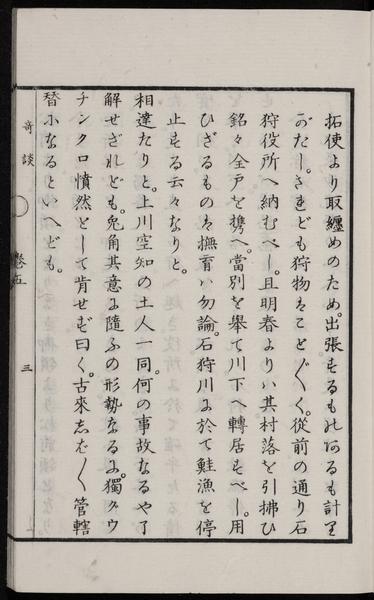 拓使より取纏めのため。出張するも北邊るも計り
がたし。されども狩物はこと〴〵く。從前の通り石
狩役所へ納むべし。且明春よりハ其村落を引拂ひ
銘々全戸を携へ。當別を擧て川下へ轉居すべし。用
ひざるものは撫育ハ勿論。石狩川に於て鮭漁を停
止する云々なりと。
相違たりと。上川空知の土人一同。何の事故なるや了
解せざれども。兎角其意に隨ふの形勢なるに。獨クウ
チンクロ憤然として肯せず曰く。古來しば〳〵管轄
替になるといへども。
奇談
卷五
三